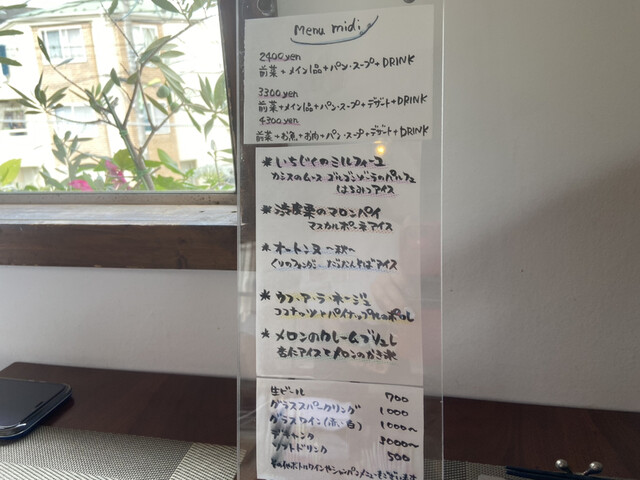 Menu midi
2400yen
前菜+メイン1品+パン・スープ+DRINK
3300yen
前菜+メイン1品+パン・スープ+デザート+DRINK
4300yen
前菜+お魚+お肉+パン・スープ+デザート+DRINK
* いちじくのミルフィーユ
カシスのムース ゴルゴンゾーラのパルフェ
はちみつアイス
* 渋皮栗のマロンパイ
マスカルポーネアイス
* オートンヌ 〜秋〜
くりのフォンダン だったんそばアイス
* ウフ・ア・ラ・ネージュ
ココナッツとパイナップルのポワレ
* メロンのクレームブリュレ
杏仁アイスとメロンのかき氷
生ビール 700
グラススパークリング 1000
グラスワイン(赤・白) 1000〜
デキャンタ 3000〜
ソフトドリンク 500
その他ボトルワインやシャンパンメニューもございます